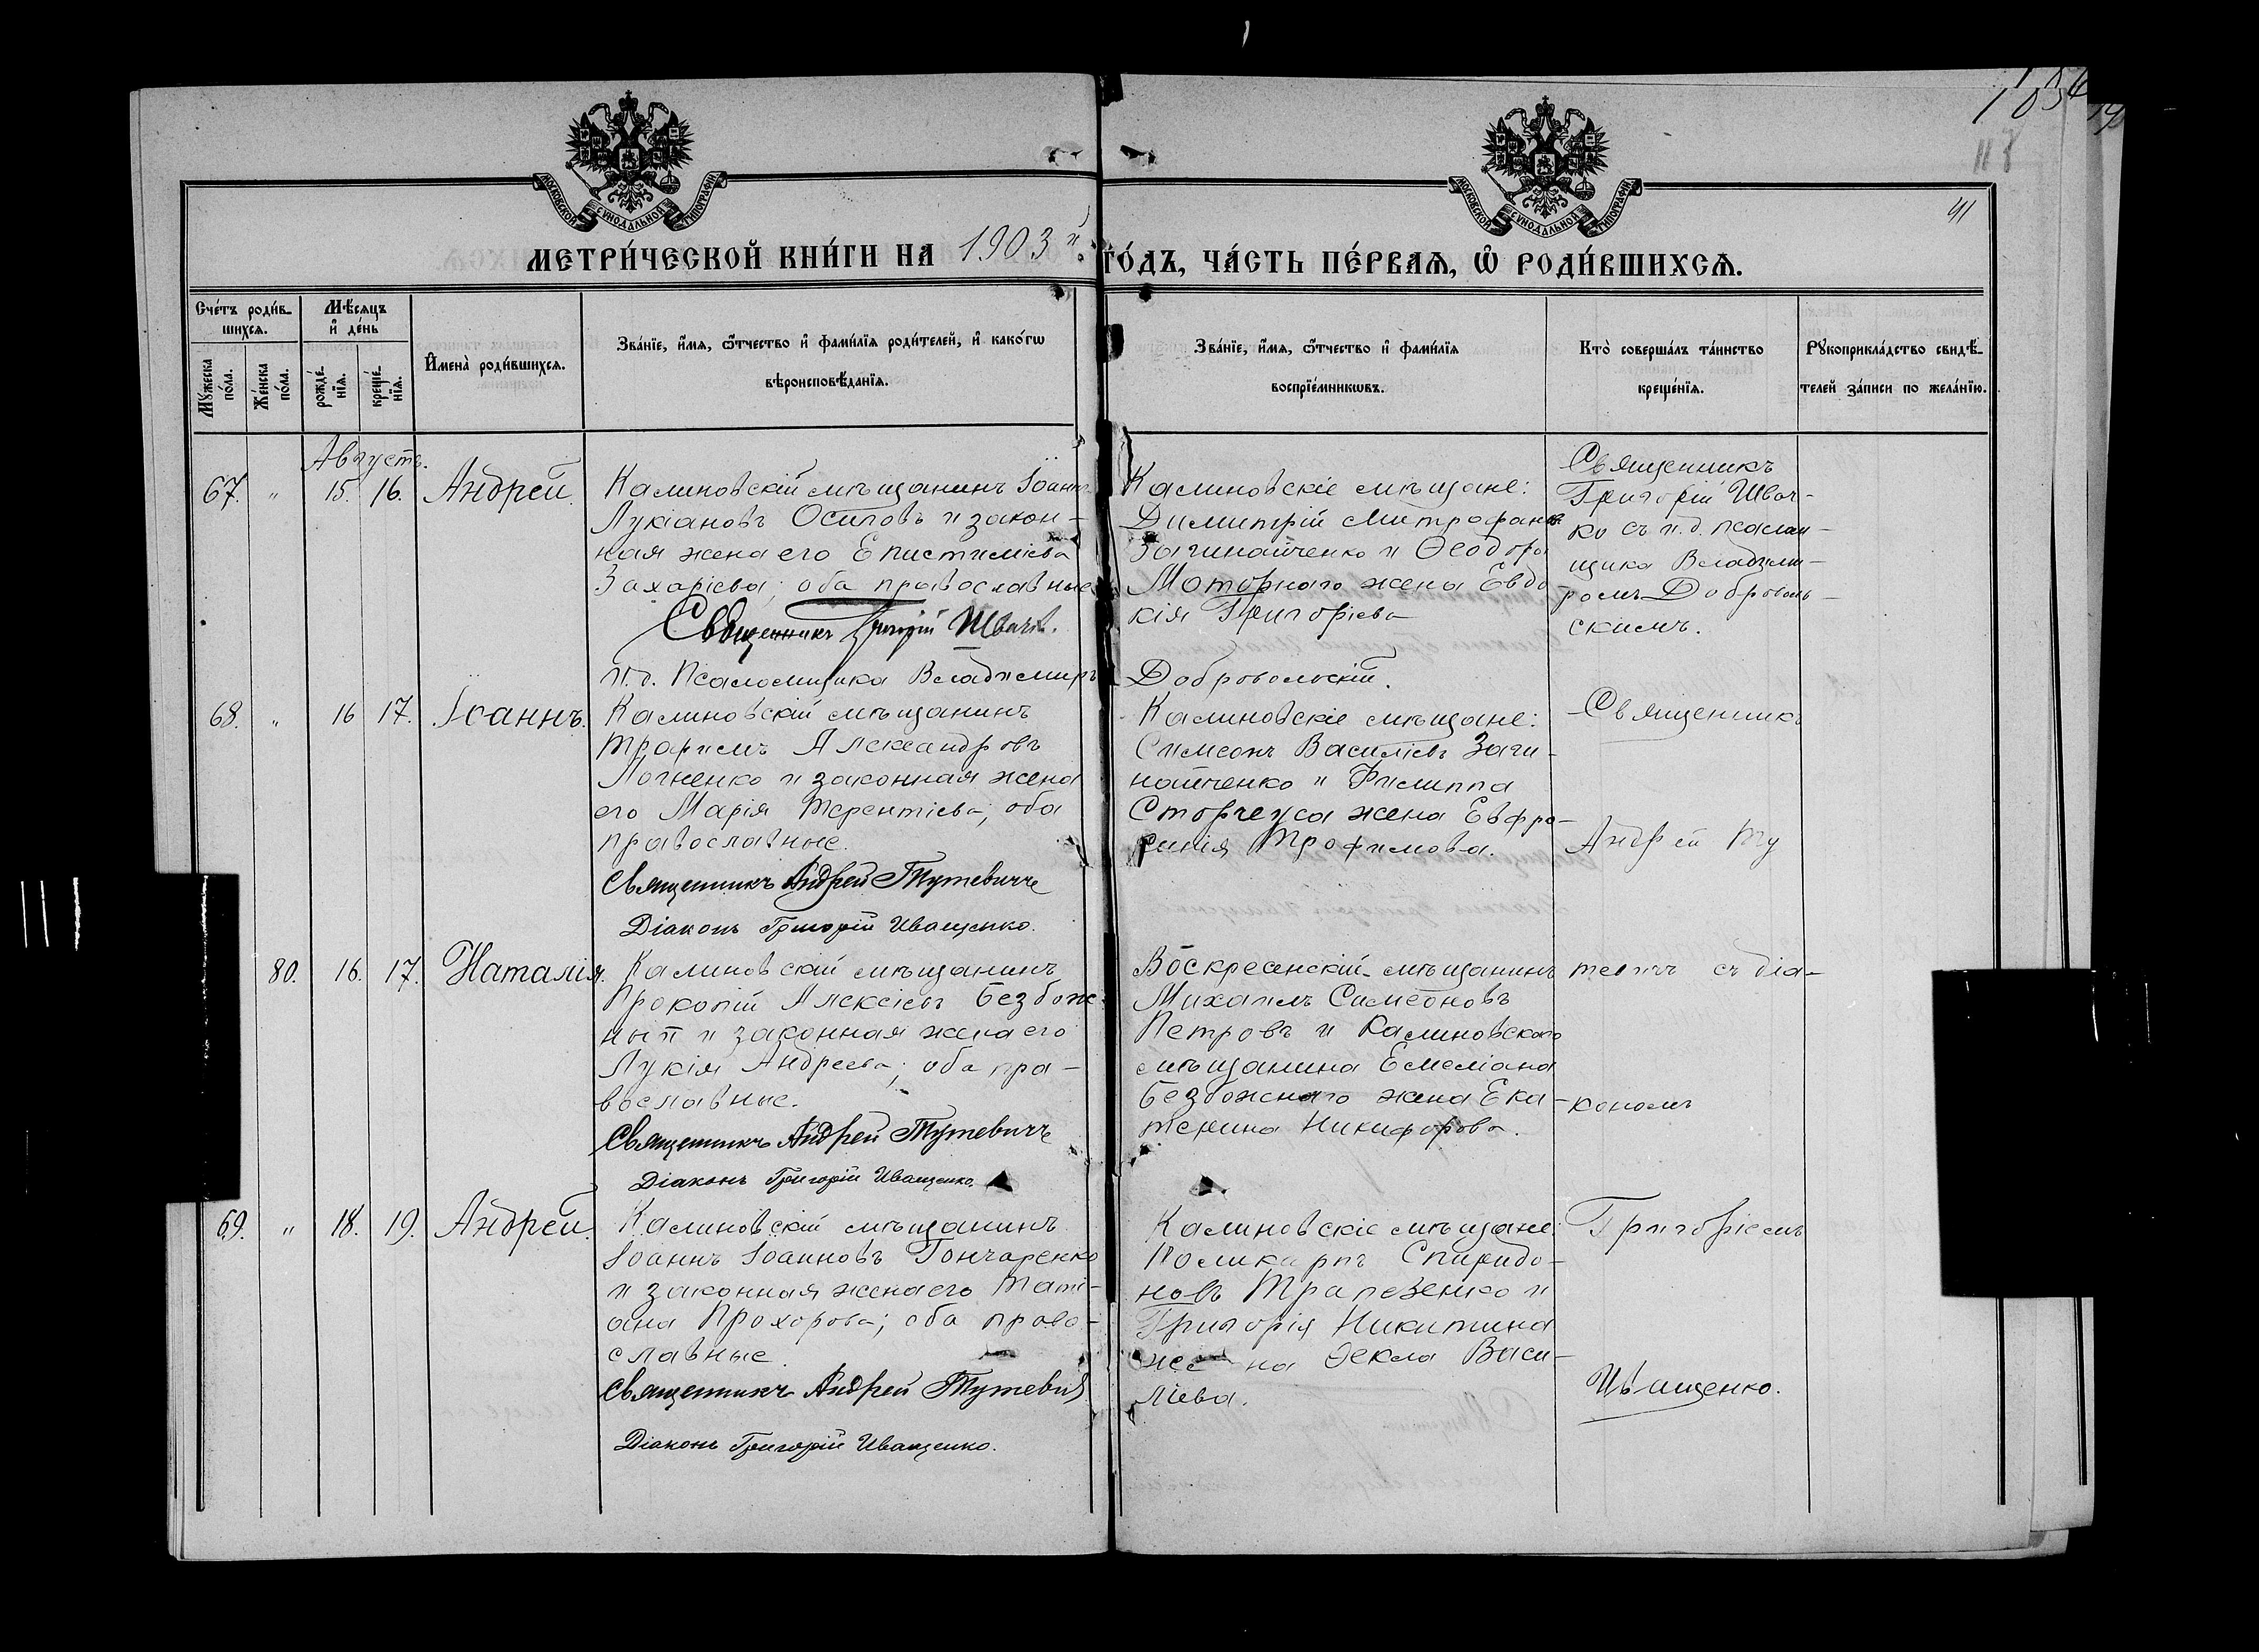 1054
118
41
МОСКОВСКОЙ СУНОДАЛЬНОЙ ТИПОГРАФІИ
МОСКОВСКОЙ СУНОДАЛЬНОЙ ТИПОГРАФІИ
МЕТРИ́ЧЕСКОЙ КНИ́ГИ НА 1903 й
ГО́ДЪ, ЧА́СТЬ ПЕ́РВАѦ, Ѡ҆ РОДИ́ВШИХСѦ.
Сче́тъ роди́в-
шихсѧ.
Мѣ́сѧцъ
и҆ де́нь
Мꙋ́жеска
по́ла.
Же́нска
по́ла.
рожде́-
нїѧ.
креще́-
нїѧ.
И҆мена̀ роди́вшихсѧ.
Зва́нїе, и҆́мѧ, ѻ҆́тчество и҆ фами́лїѧ роди́телей, и҆ како́гѡ
вѣроисповѣ́данїѧ.
Зва́нїе, и҆́мѧ, ѻ҆́тчество и҆ фами́лїѧ
воспрїе́мникѡвъ.
Кто̀ соверша́лъ та́инство
креще́нїѧ.
Рꙋкоприкла́дство свидѣ́-
телей за́писи по жела́нїю.
Августъ.
67. " 15. 16. Андрей.
Калиновскій мѣщанинъ Іоаннъ
Лукіановъ Осиповъ и закон-
ная жена его Епистимієва
Захарієва; оба православные
Священникъ Григорій Швач.
и.д. Псаломщика Владимиръ Добровольскій.
Калиновскіе мѣщане:
Димитрій Митрофановъ
Загинайченко и Ѳеодора
Моторнаго жена Евдо
кія Григорієва
Священникъ
Григорій Швач-
ко съ и.д. псалом-
щика Влади́ми-
ромъ Доброволь-
скимъ.
68. " 16 17. Іоаннъ.
Калиновскій мѣщанинъ
Трофимъ Александровъ
Логненко и законная жена
его Марія Терентієва; оба
православные.
Священникъ Андрей Тутевичъ
Діаконъ Григорій Иващенко.
Калиновскіе мѣщане:
Симеонъ Василієвъ Заги-
найченко и Филиппа
Сторчеуса жена Евфро-
синія Трофимова.
Священникъ
Андрей Ту
80. 16. 17. Наталія.
Калиновскій мѣщанинъ
Прокопій Алексієвъ Безбож-
ный и законная жена его
Лукія Андреева; оба пра-
вославные.
Священникъ Андрей Тутевичъ
Діаконъ Григорій Иващенко.
Воскресенскій мѣщанинъ
Михаилъ Симеоновъ
Петровъ и Калиновскаго
мѣщанина Емеліана
Безбожнаго жена Ека-
терина Никифорова.
тевичъ съ діа-
кономъ
69. " 18. 19. Андрей.
Калиновскій мѣщанинъ
Іоаннъ Іоанновъ Гончаренко
и законная жена его Тати-
ана Прохорова; оба право-
славные.
Священникъ Андрей Тутевичъ
Діаконъ Григорій Иващенко.
Калиновскіе мѣщане:
Поликарпъ Спиридо-
новъ Трапезенко и
Григорія Никитина
же на Ѳекла Васи-
лієва.
Григоріемъ
Иващенко.